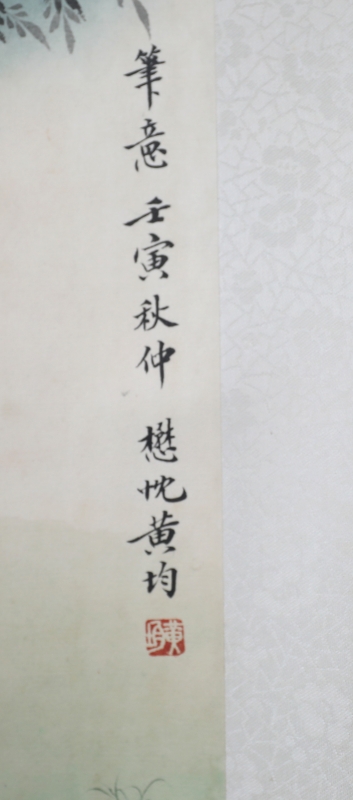 筆意 壬寅秋仲 懋忱黃均
黃均